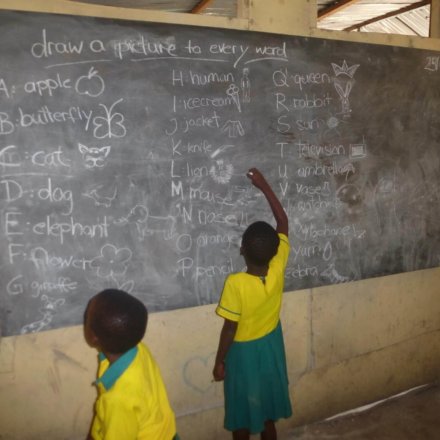 draw a picture to every word
A: apple
B: butterfly
C: cat
D: dog
E: elephant
F: flower
G: giraffe
H: human
I: icecream
J: jacket
K: knife
L: lion
M: mouse
N nose
O orange
P pencil
Q: queen
R: rabbit
S: sun
T television
U umbrella
V vase
yarn
zebra